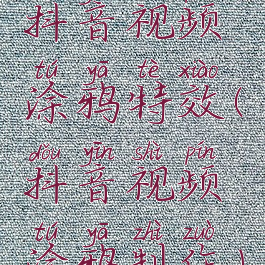 抖音视频
tú yā tè xiào
涂鸦特效(
dǒu yīn shì pín
抖音视频
tú yā zhì zuò
涂鸦制作)